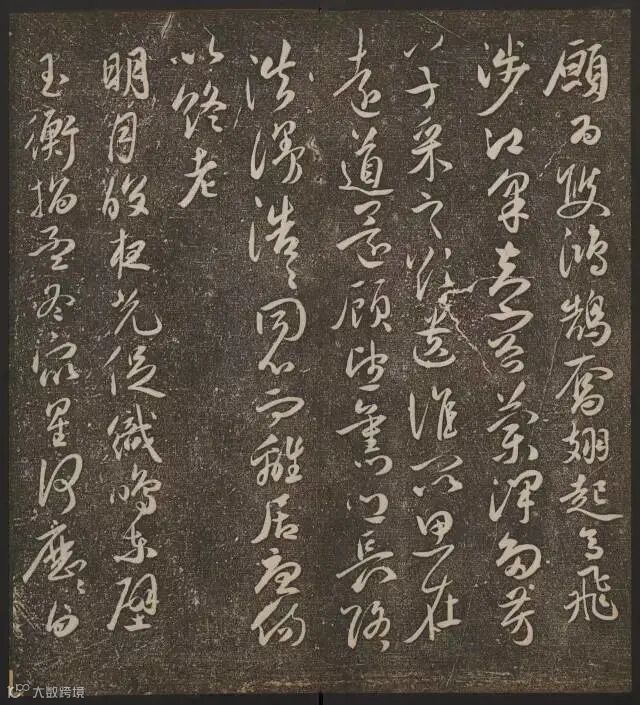 願為雙鴻鵠奮翅起高飛
涉江采芙蓉蘭澤多芳
草采之欲遺誰所思在
遠道還顧望舊鄉長路
漫浩〻同心而離居憂傷
以終老
明月皎夜光促織鳴東壁
玉衡指孟冬衆星何歷〻白
大数跨境